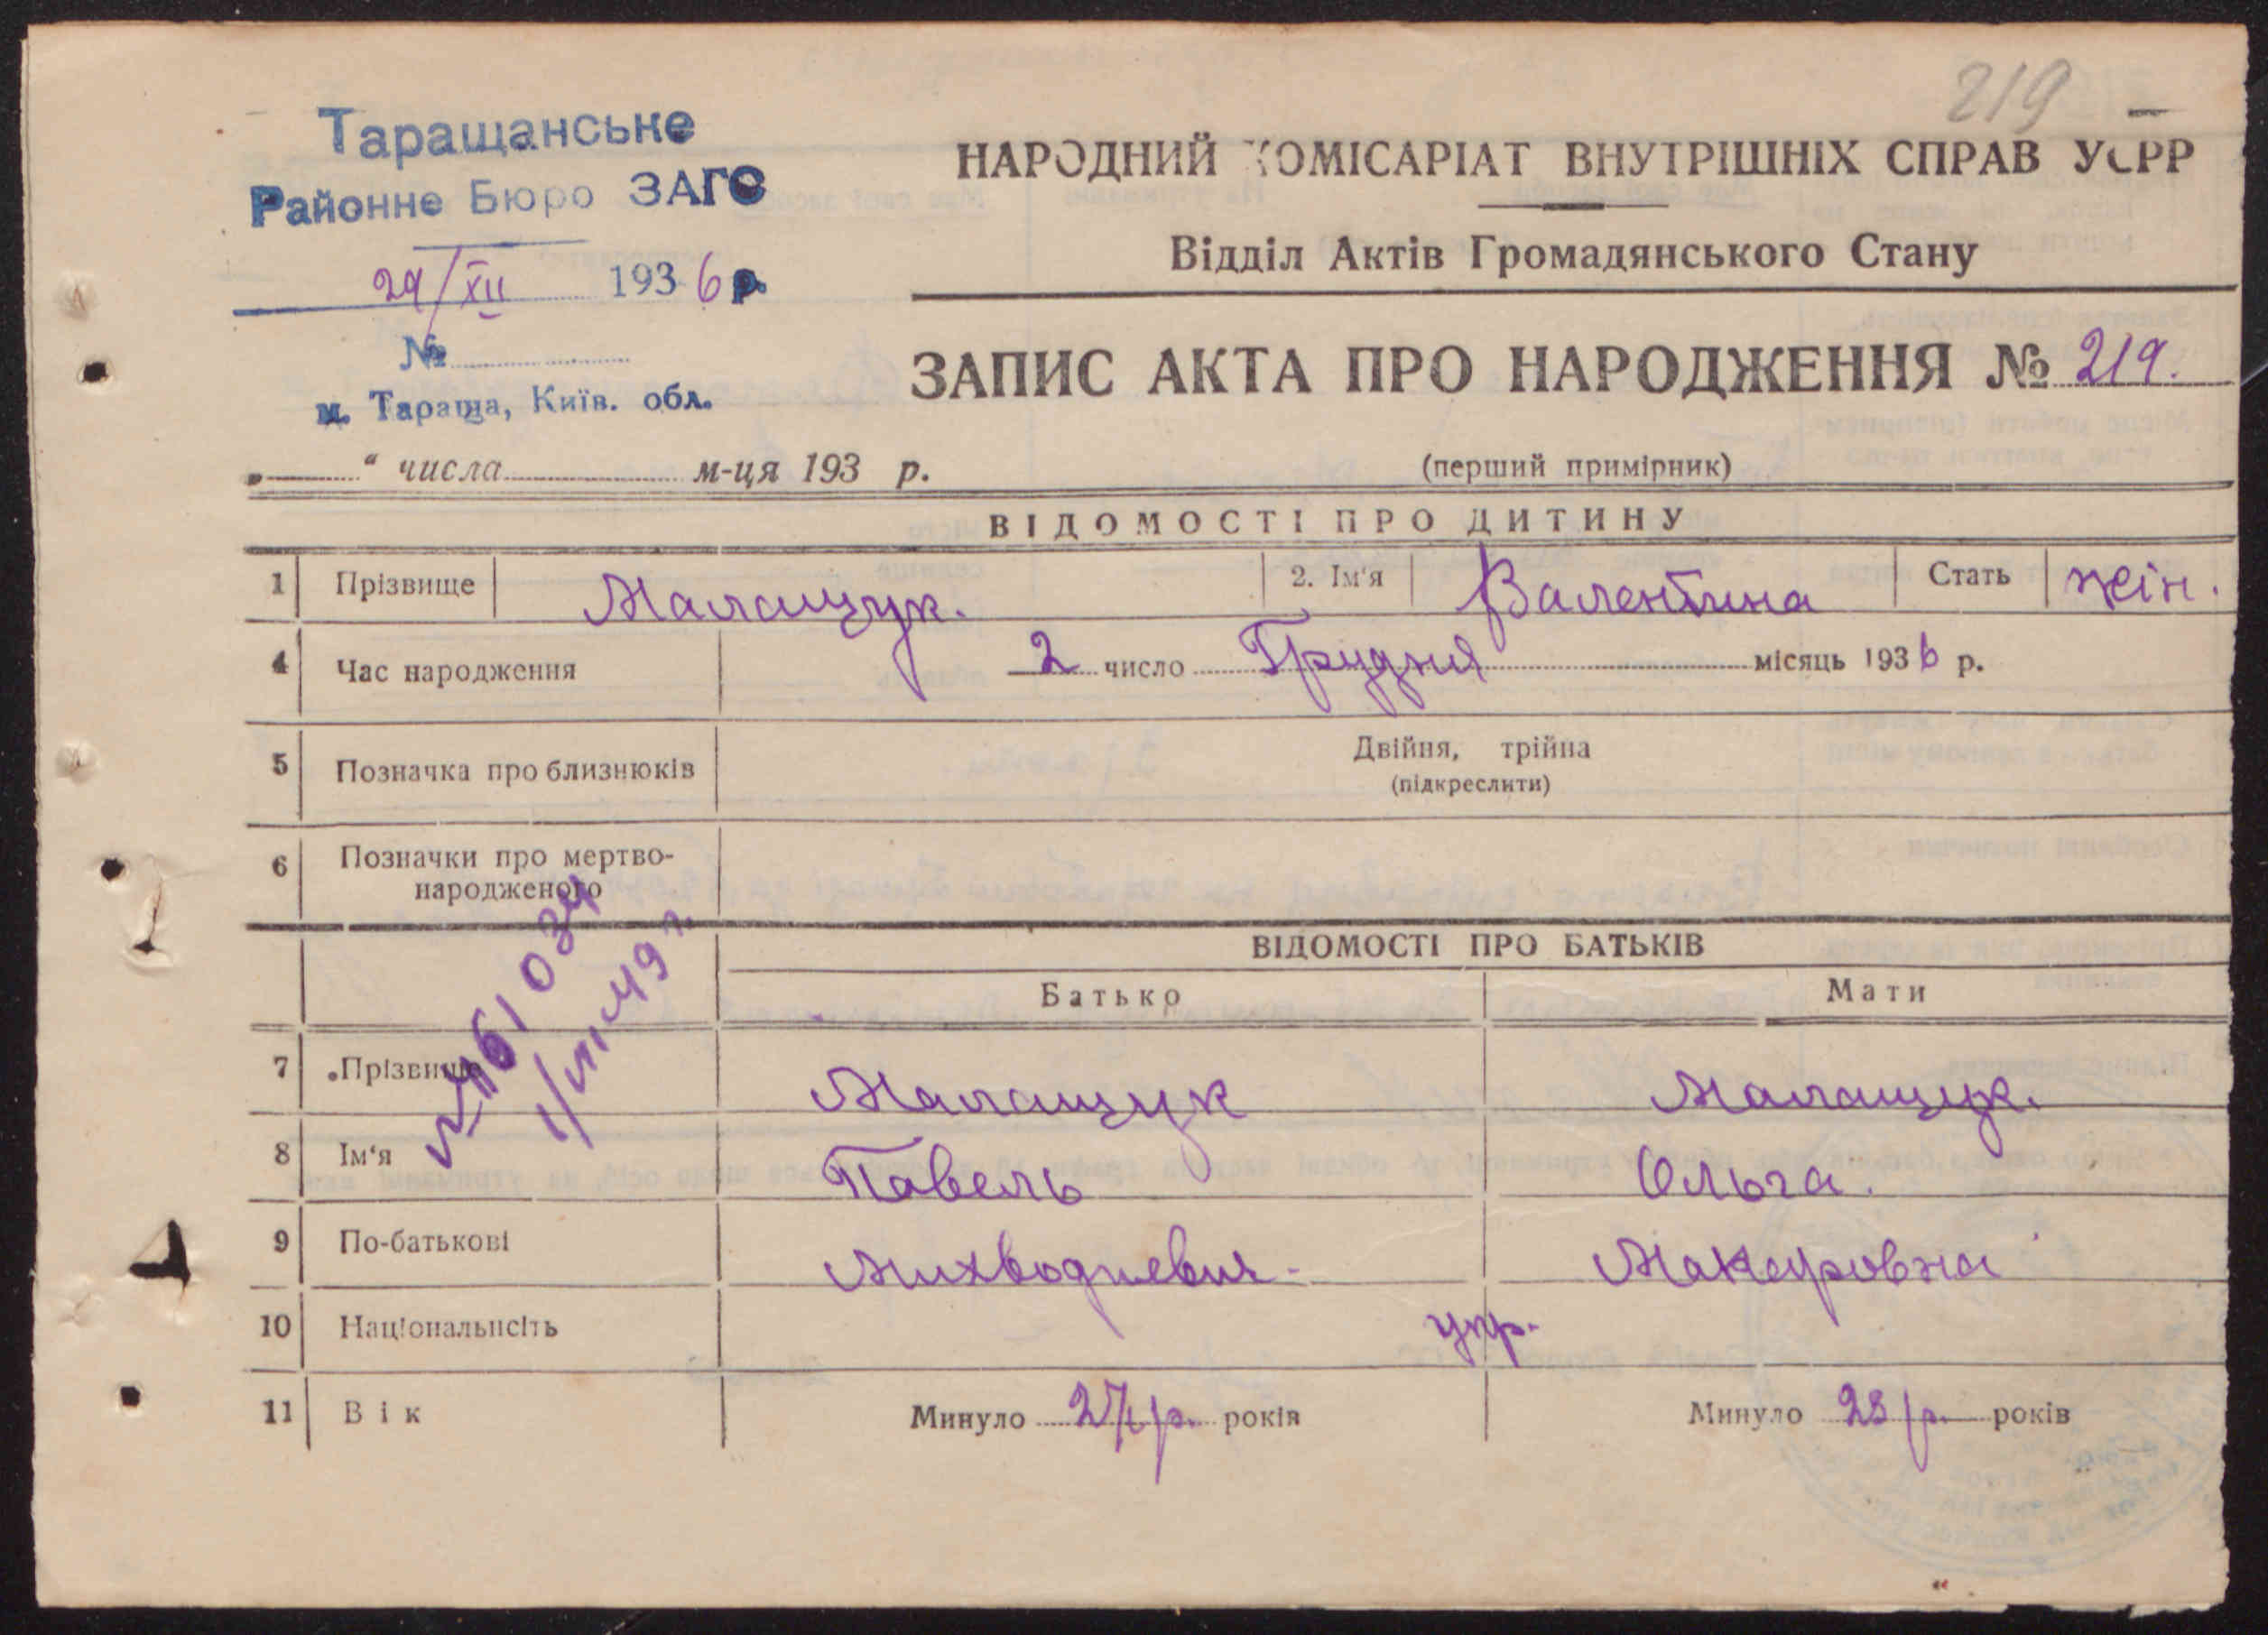 219
Таращанське
Районне Бюро ЗАГС
29/XII 1936 р.
№
м. Тараща, Київ. обл.
„ “ числа м-ця 193 р.
НАРОДНИЙ КОМІСАРІАТ ВНУТРІШНІХ СПРАВ УСРР
Відділ Актів Громадянського Стану
ЗАПИС АКТА ПРО НАРОДЖЕННЯ № 219.
(перший примірник)
ВІДОМОСТІ ПРО ДИТИНУ
1 Прізвище Малащук. 2. Ім‘я Валентина Стать жін.
4 Час народження 2 число Грудня місяць 1936 р.
5 Позначка про близнюків Двійня, трійна
(підкреслити)
6 Позначки про мертво-
народженого
ВІДОМОСТІ ПРО БАТЬКІВ
Батько Мати
7 Прізвище Малащук Малащук.
8 Ім‘я Павель Ольга.
9 По-батькові Макаровна
10 Національність укр.
11 Вік Минуло 27 р. років Минуло 28 р. років